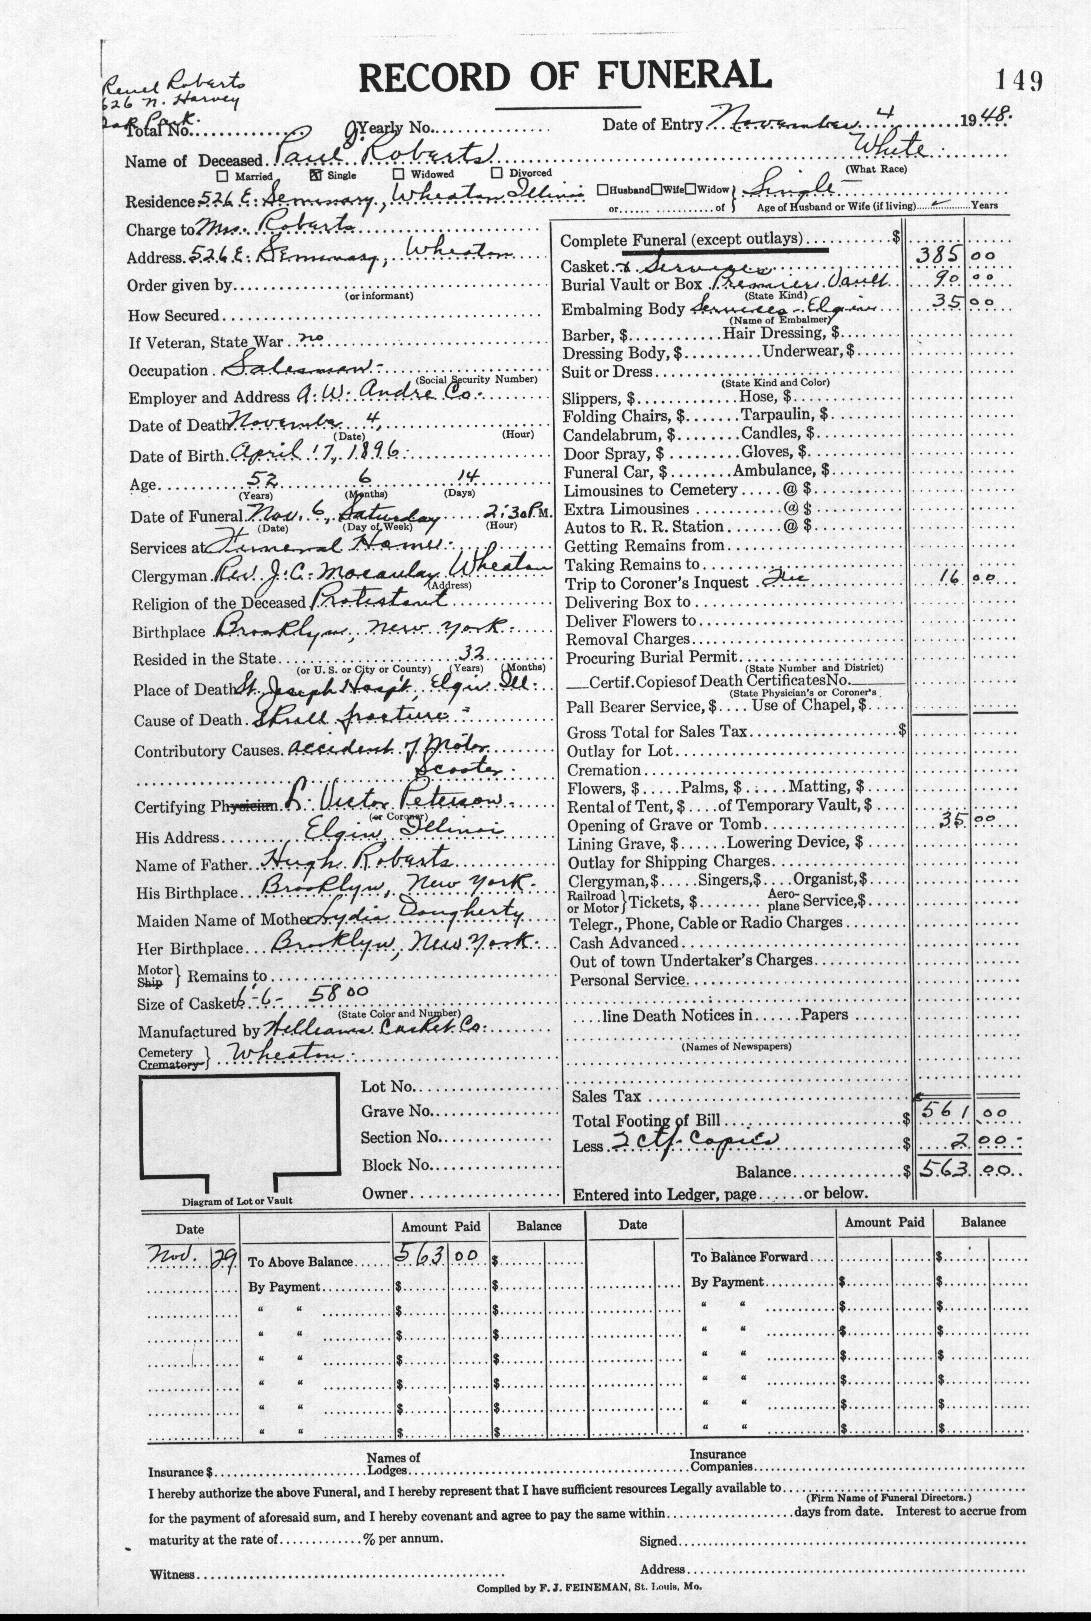 Reuel Roberts
626 N. Harvey
Oak Park.
RECORD OF FUNERAL
149
Total No. Yearly No. Date of Entry November 4 1948.
Name of Deceased Paul J. Roberts White
Married ☒ Single Widowed Divorced (What Race)
Residence 526 E. Seminary, Wheaton Illinois Husband Wife Widow } Single
or of } Age of Husband or Wife (if living) Years
Charge to Mrs. Roberts
Address 526 E. Seminary, Wheaton
Order given by
(or informant)
How Secured
If Veteran, State War no
Occupation Salesman -
(Social Security Number)
Employer and Address A. W. Andre Co.
Date of Death November 4,
(Date) (Hour)
Date of Birth April 17, 1896
Age 52 6 14
(Years) (Months) (Days)
Date of Funeral Nov. 6, Saturday 2:30 P.M.
(Date) (Day of Week) (Hour)
Services at Funeral Home -
Clergyman Rev. J. C. Macaulay Wheaton
(Address)
Religion of the Deceased Protestant
Birthplace Brooklyn, New York.
Resided in the State 32
(or U. S. or City or County) (Years) (Months)
Place of Death St. Joseph Hosp't, Elgin Ill.
Cause of Death Skull fracture -
Contributory Causes accident of Motor
Scooter.
Certifying Physician L. Victor Peterson -
(or Coroner)
His Address Elgin, Illinois
Name of Father Hugh Roberts
His Birthplace Brooklyn, New York.
Maiden Name of Mother Lydia Dougherty
Her Birthplace Brooklyn, New York.
Motor
Ship } Remains to
Size of Casket 6-6- 5800
(State Color and Number)
Manufactured by Williams Casket Co.
Cemetery
Crematory } Wheaton.
Lot No.
Grave No.
Section No.
Block No.
Owner
Diagram of Lot or Vault
Complete Funeral (except outlays) $
Casket & Services 385 00
Burial Vault or Box Premier Vault 90 00
(State Kind)
Embalming Body Services - Elgin 35 00
(Name of Embalmer)
Barber, $ Hair Dressing, $
Dressing Body, $ Underwear, $
Suit or Dress
(State Kind and Color)
Slippers, $ Hose, $
Folding Chairs, $ Tarpaulin, $
Candelabrum, $ Candles, $
Door Spray, $ Gloves, $
Funeral Car, $ Ambulance, $
Limousines to Cemetery @ $
Extra Limousines @ $
Autos to R. R. Station @ $
Getting Remains from
Taking Remains to
Trip to Coroner's Inquest 16 00
Delivering Box to
Deliver Flowers to
Removal Charges
Procuring Burial Permit
(State Number and District)
Certif. Copies of Death Certificates No.
(State Physician's or Coroner's
Pall Bearer Service, $ Use of Chapel, $
Gross Total for Sales Tax $
Outlay for Lot
Cremation
Flowers, $ Palms, $ Matting, $
Rental of Tent, $ of Temporary Vault, $
Opening of Grave or Tomb 35 00
Lining Grave, $ Lowering Device, $
Outlay for Shipping Charges
Clergyman, $ Singers, $ Organist, $
Railroad or Motor } Tickets, $ Aero-plane Service, $
Telegr., Phone, Cable or Radio Charges
Cash Advanced
Out of town Undertaker's Charges
Personal Service
line Death Notices in Papers
(Names of Newspapers)
Sales Tax
Total Footing of Bill $ 561 00
Less 2 Ctf. Copies $ 2 00 -
Balance $ 563 00
Entered into Ledger, page or below.
Date Amount Paid Balance Date Amount Paid Balance
Nov. 29 To Above Balance 563 00 $ To Balance Forward $
By Payment $ $ By Payment $ $
" " $ $ " " $ $
" " $ $ " " $ $
" " $ $ " " $ $
" " $ $ " " $ $
" " $ $ " " $ $
" " $ $ " " $ $
Insurance $ Names of Lodges Insurance Companies
I hereby authorize the above Funeral, and I hereby represent that I have sufficient resources Legally available to
(Firm Name of Funeral Directors.)
for the payment of aforesaid sum, and I hereby covenant and agree to pay the same within days from date. Interest to accrue from
maturity at the rate of % per annum. Signed
Witness Address
Compiled by F. J. FEINEMAN, St. Louis, Mo.